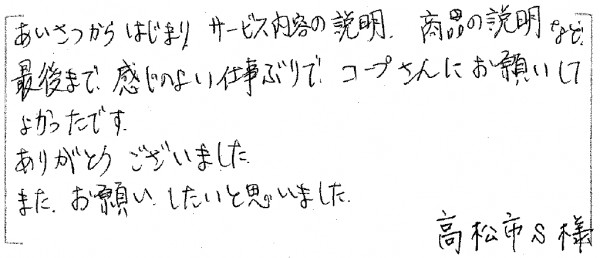 あいさつから はじまり サービス内容の説明、商品の説明など、
最後まで、感じのよい仕事ぶりで、コープさんにお願いして
よかったです。
ありがとう ございました。
また、お願い したいと思いました。
高松市S様